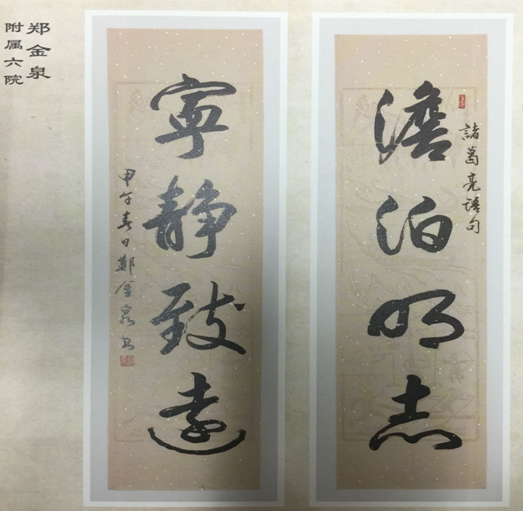 諸葛亮語句
澹泊明志
寧静致遠
甲午春日鄭金泉書
郑金泉
附属六院